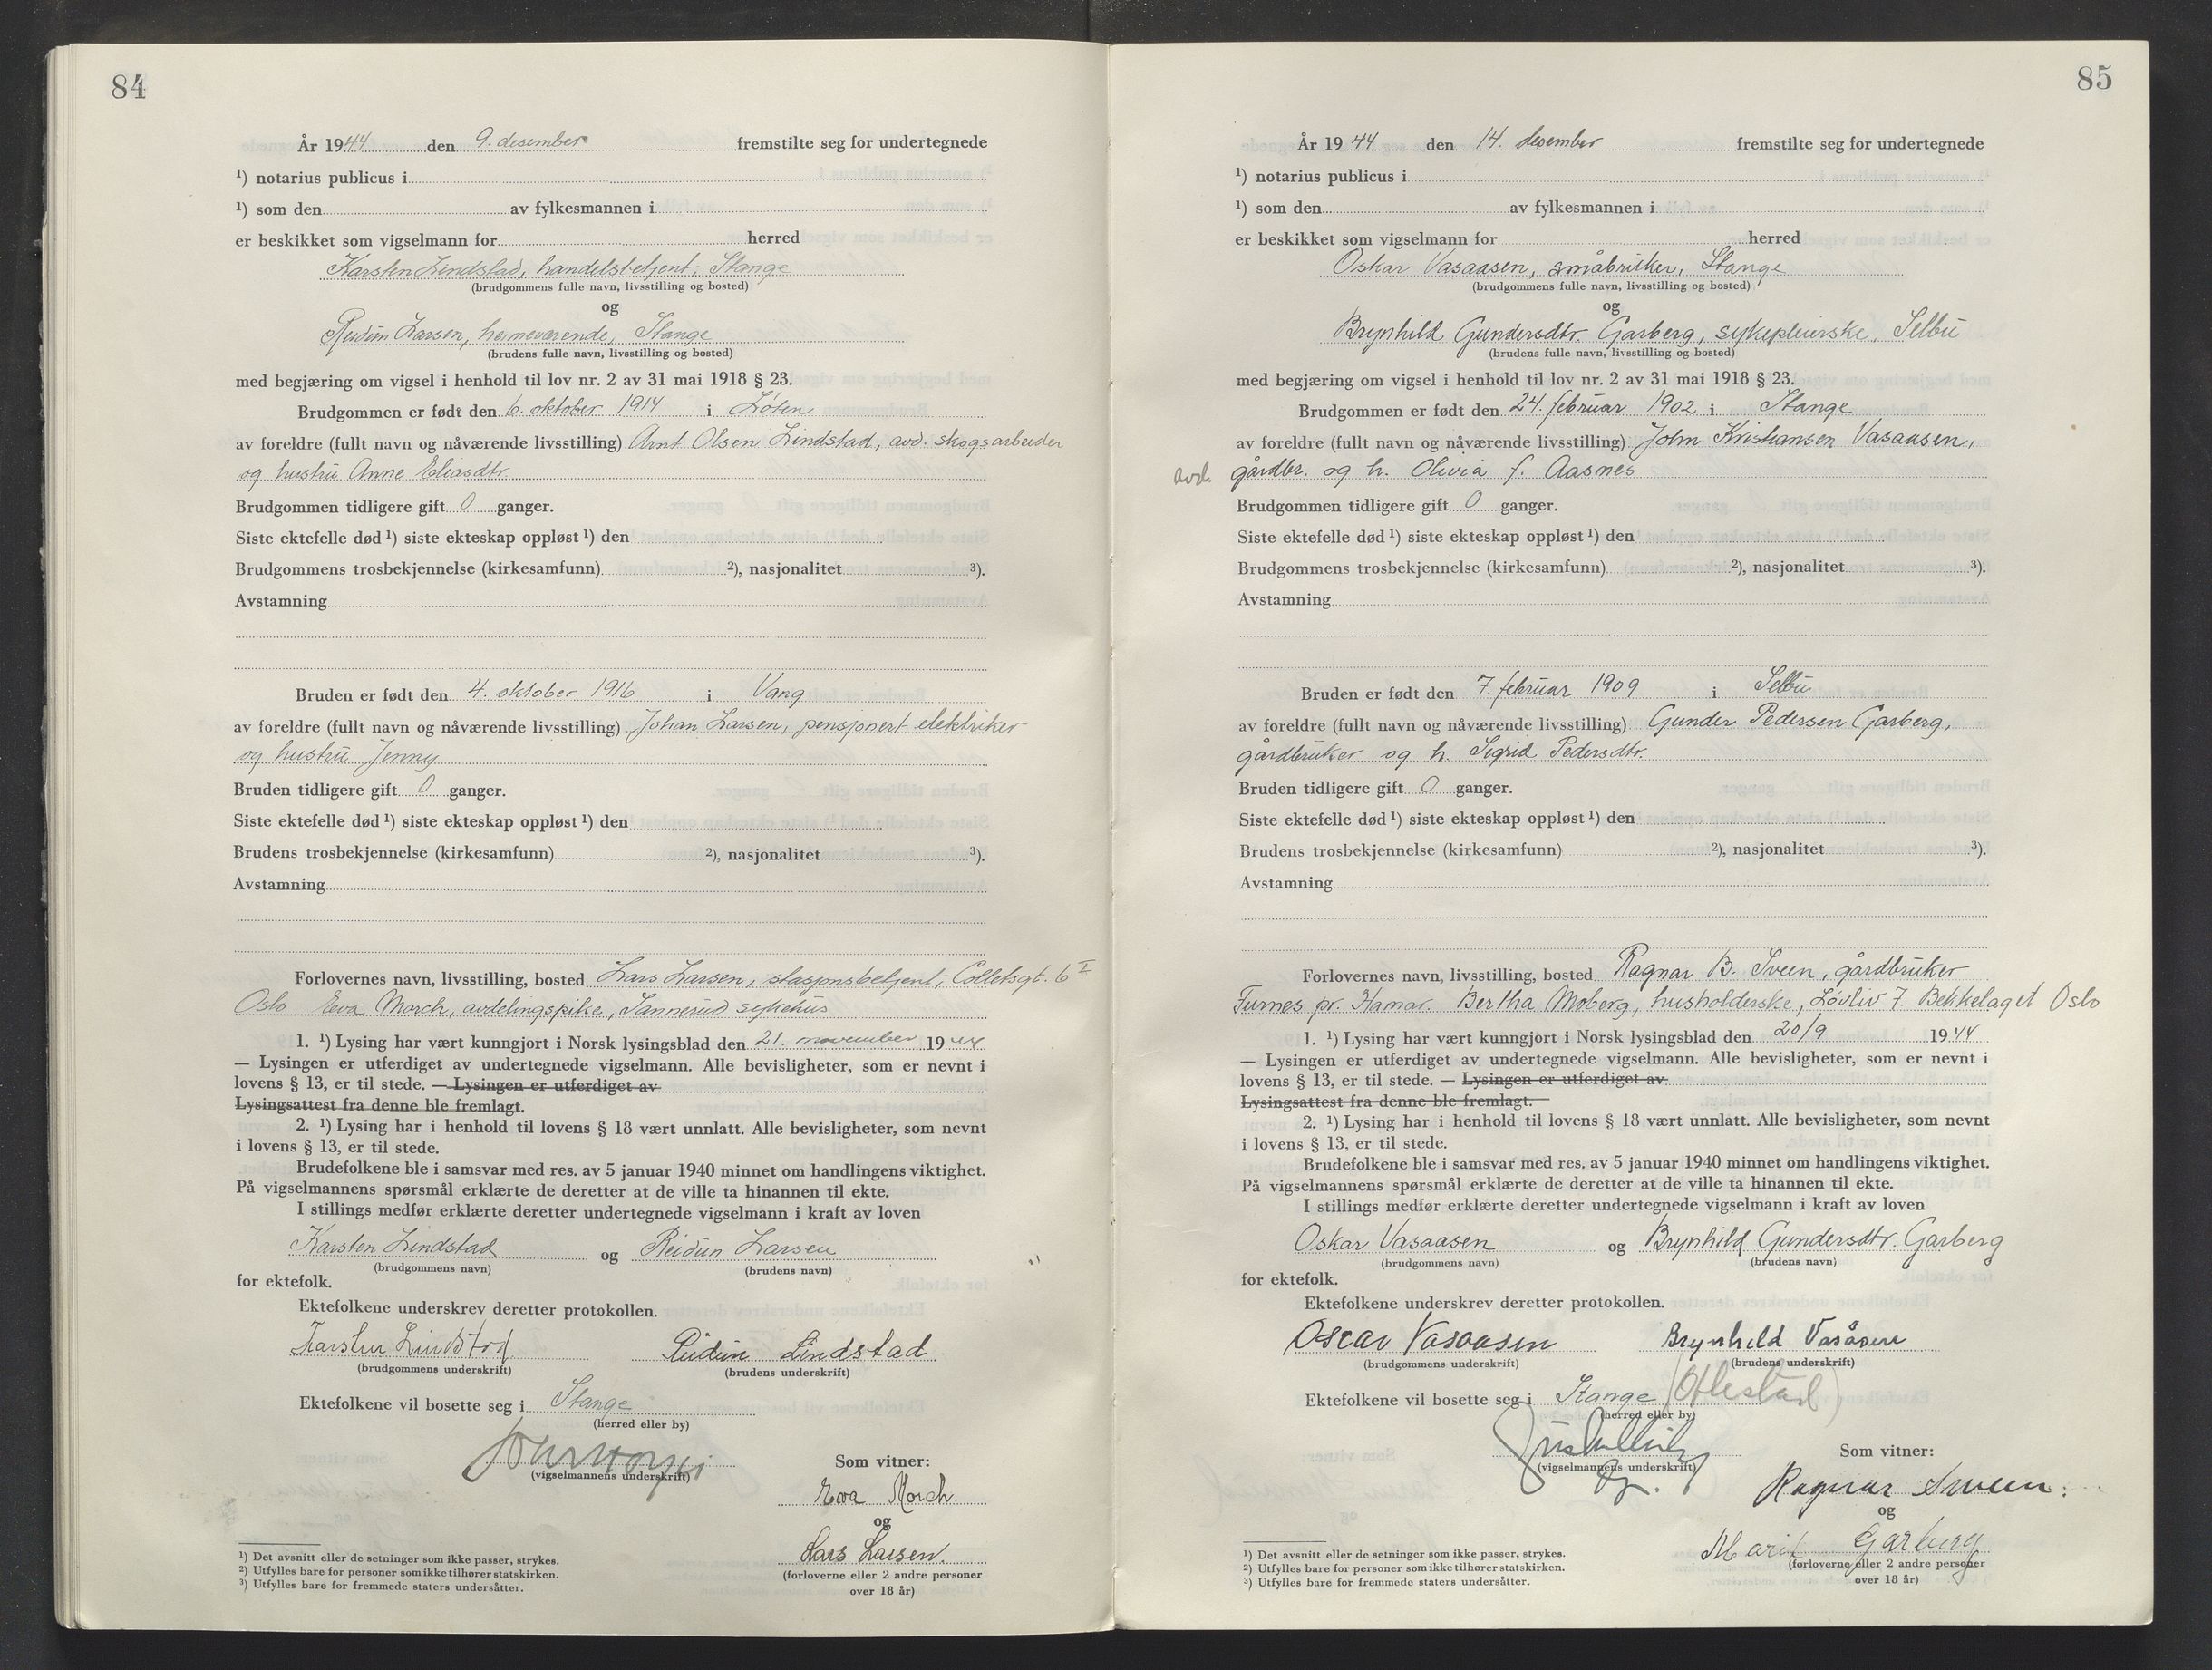 84
År 1944 den 9. desember fremstilte seg for undertegnede
¹) notarius publicus i
¹) som den av fylkesmannen i
er beskikket som vigselmann for herred
Karsten Lindstad, handelsbetjent, Stange
(brudgommens fulle navn, livsstilling og bosted)
og
Reidun Larsen, heimeværende, Stange
(brudens fulle navn, livsstilling og bosted)
med begjæring om vigsel i henhold til lov nr. 2 av 31 mai 1918 § 23.
Brudgommen er født den 6. oktober 1914 i Löten
av foreldre (fullt navn og nåværende livsstilling) Arnt Olsen Lindstad, avd. skogsarbeider
og hustru Anne Eliasdtr.
Brudgommen tidligere gift 0 ganger.
Siste ektefelle død ¹) siste ekteskap oppløst ¹) den
Brudgommens trosbekjennelse (kirkesamfunn) ²), nasjonalitet ³).
Avstamning
Bruden er født den 4. oktober 1916 i Vang
av foreldre (fullt navn og nåværende livsstilling) Johan Larsen, pensjonert elektriker
og hustru Jenny
Bruden tidligere gift 0 ganger.
Siste ektefelle død ¹) siste ekteskap oppløst ¹) den
Brudens trosbekjennelse (kirkesamfunn) ²), nasjonalitet ³).
Avstamning
Forlovernes navn, livsstilling, bosted Lars Larsen, stasjonsbetjent, Colletsgt. 6 I
Oslo Eva Morch, avdelingspike, Sannerud sykehus
1. ¹) Lysing har vært kunngjort i Norsk lysingsblad den 21. november 1944
— Lysingen er utferdiget av undertegnede vigselmann. Alle bevisligheter, som er nevnt i
lovens § 13, er til stede. — Lysingen er utferdiget av
Lysingsattest fra denne ble fremlagt.
2. ¹) Lysing har i henhold til lovens § 18 vært unnlatt. Alle bevisligheter, som nevnt
i lovens § 13, er til stede.
Brudefolkene ble i samsvar med res. av 5 januar 1940 minnet om handlingens viktighet.
På vigselmannens spørsmål erklærte de deretter at de ville ta hinannen til ekte.
I stillings medfør erklærte deretter undertegnede vigselmann i kraft av loven
Karsten Lindstad og Reidun Larsen
(brudgommens navn) (brudens navn)
for ektefolk.
Ektefolkene underskrev deretter protokollen.
Karsten Lindstad Reidun Lindstad
(brudgommens underskrift) (brudens underskrift)
Ektefolkene vil bosette seg i Stange
(herred eller by)
(vigselmannens underskrift)
Som vitner:
Eva Morch.
og
Lars Larsen.
(forloverne eller 2 andre personer
over 18 år)
¹) Det avsnitt eller de setninger som ikke passer, strykes.
²) Utfylles bare for personer som ikke tilhører statskirken.
³) Utfylles bare for fremmede staters undersåtter.
85
År 1944 den 14. desember fremstilte seg for undertegnede
¹) notarius publicus i
¹) som den av fylkesmannen i
er beskikket som vigselmann for herred
Oskar Vasaasen, småbruker, Stange
(brudgommens fulle navn, livsstilling og bosted)
og
Brynhild Gundersdtr. Garberg, sykepleierske, Selbu
(brudens fulle navn, livsstilling og bosted)
med begjæring om vigsel i henhold til lov nr. 2 av 31 mai 1918 § 23.
Brudgommen er født den 24. februar 1902 i Stange
av foreldre (fullt navn og nåværende livsstilling) John Kristiansen Vasaasen,
avd. gårdbr. og h. Olivia f. Aasnes
Brudgommen tidligere gift 0 ganger.
Siste ektefelle død ¹) siste ekteskap oppløst ¹) den
Brudgommens trosbekjennelse (kirkesamfunn) ²), nasjonalitet ³).
Avstamning
Bruden er født den 7. februar 1909 i Selbu
av foreldre (fullt navn og nåværende livsstilling) Gunder Pedersen Garberg,
gårdbruker og h. Sigrid Pedersdtr.
Bruden tidligere gift 0 ganger.
Siste ektefelle død ¹) siste ekteskap oppløst ¹) den
Brudens trosbekjennelse (kirkesamfunn) ²), nasjonalitet ³).
Avstamning
Forlovernes navn, livsstilling, bosted Ragnar B. Sveen, gårdbruker
Furnes pr. Hamar. Bertha Moberg, husholderske, Løvliv 7. Bekkelaget Oslo
1. ¹) Lysing har vært kunngjort i Norsk lysingsblad den 20/9 1944
— Lysingen er utferdiget av undertegnede vigselmann. Alle bevisligheter, som er nevnt i
lovens § 13, er til stede. — Lysingen er utferdiget av
Lysingsattest fra denne ble fremlagt. —
2. ¹) Lysing har i henhold til lovens § 18 vært unnlatt. Alle bevisligheter, som nevnt
i lovens § 13, er til stede.
Brudefolkene ble i samsvar med res. av 5 januar 1940 minnet om handlingens viktighet.
På vigselmannens spørsmål erklærte de deretter at de ville ta hinannen til ekte.
I stillings medfør erklærte deretter undertegnede vigselmann i kraft av loven
Oskar Vasaasen og Brynhild Gundersdtr. Garberg
(brudgommens navn) (brudens navn)
for ektefolk.
Ektefolkene underskrev deretter protokollen.
Oscar Vasaasen Brynhild Vasåsen
(brudgommens underskrift) (brudens underskrift)
Ektefolkene vil bosette seg i Stange (Ottestad)
(herred eller by)
(vigselmannens underskrift)
Som vitner:
Ragnar Sveen.
og
Marit Garberg
(forloverne eller 2 andre personer
over 18 år)
¹) Det avsnitt eller de setninger som ikke passer, strykes.
²) Utfylles bare for personer som ikke tilhører statskirken.
³) Utfylles bare for fremmede staters undersåtter.